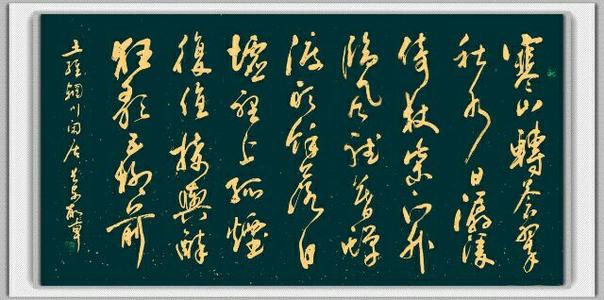 寒山轉蒼翠
秋水日潺湲
倚杖柴門外
臨風聽暮蟬
渡頭餘落日
墟里上孤煙
復值接輿醉
狂歌五柳前
王維輞川閑居